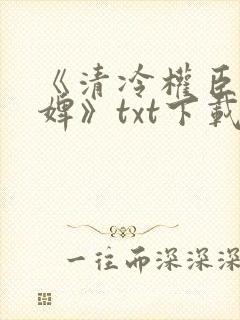 《清冷權臣
婢》txt下載
一往而深深深